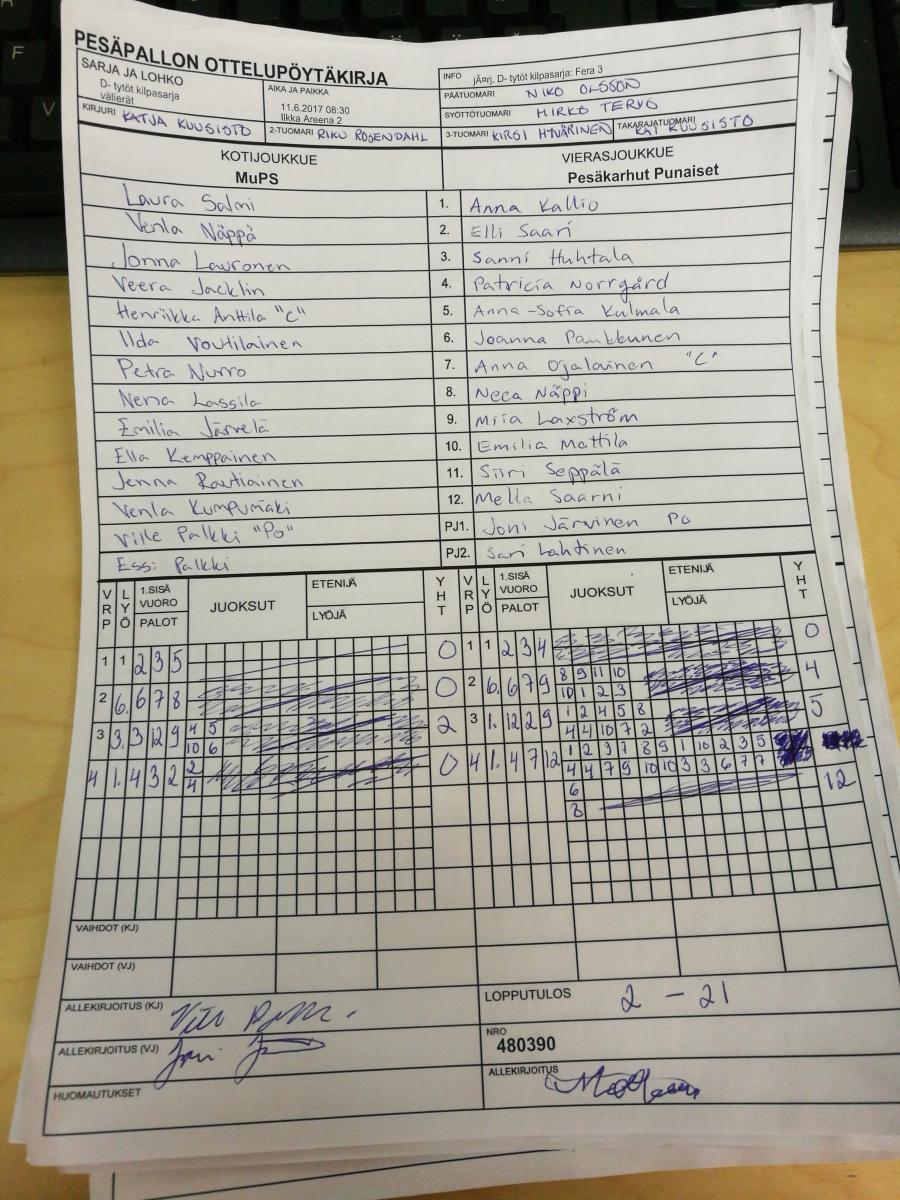 PESÄPALLON OTTELUPÖYTÄKIRJA
SARJA JA LOHKO
D- tytöt kilpasarja
välierät
AIKA JA PAIKKA
11.6.2017 08:30
Ilkka Areena 2
INFO jÃ¤rj. D- tytöt kilpasarja: Fera 3
PÄÄTUOMARI NIKO OLSSON
SYÖTTÖTUOMARI MIRKO TERVO
KIRJURI KATJA KUUSISTO
2-TUOMARI RIKU ROSENDAHL
3-TUOMARI KIRSI HYVÄRINEN
TAKARAJATUOMARI KAI KUUSISTO
KOTIJOUKKUE
MuPS
VIERASJOUKKUE
Pesäkarhut Punaiset
Laura Salmi 1. Anna Kallio
Venla Näppä 2. Elli Saari
Jonna Lauronen 3. Sanni Huhtala
Veera Jacklin 4. Patricia Norrgård
Henriikka Anttila "C" 5. Anna-Sofia Kulmala
Ilda Voutilainen 6. Joanna Pankkunen
Petra Nurro 7. Anna Ojalainen "C"
Nena Lassila 8. Neea Näppi
Emilia Järvelä 9. Miia Laxström
Ella Kemppainen 10. Emilia Mattila
Jenna Rautiainen 11. Siiri Seppälä
Venla Kumpumäki 12. Mella Saarni
Ville Palkki "Po" PJ1. Joni Järvinen Po
Essi Palkki PJ2. Sari Lahtinen
VRP LYÖ 1.SISÄ VUORO PALOT JUOKSUT ETENIJÄ LYÖJÄ YHT VRP LYÖ 1.SISÄ VUORO PALOT JUOKSUT ETENIJÄ LYÖJÄ YHT
1 1 2 3 5 0 1 1 2 3 4 0
2 6. 6 7 8 0 2 6. 6 7 9 8 9 11 10 4
10 1 2 3
3 3. 3 12 9 4 5 2 3 1. 12 2 9 1 2 4 5 8 5
10 6 4 4 10 7 2
4 1. 4 3 2 2 0 4 1. 4 7 12 1 2 3 7 8 9 1 10 2 3 5
4 4 4 7 9 10 10 3 3 6 7 7 12
6
8
VAIHDOT (KJ)
VAIHDOT (VJ)
ALLEKIRJOITUS (KJ)
LOPPUTULOS 2 - 21
ALLEKIRJOITUS (VJ)
NRO
480390
HUOMAUTUKSET
ALLEKIRJOITUS